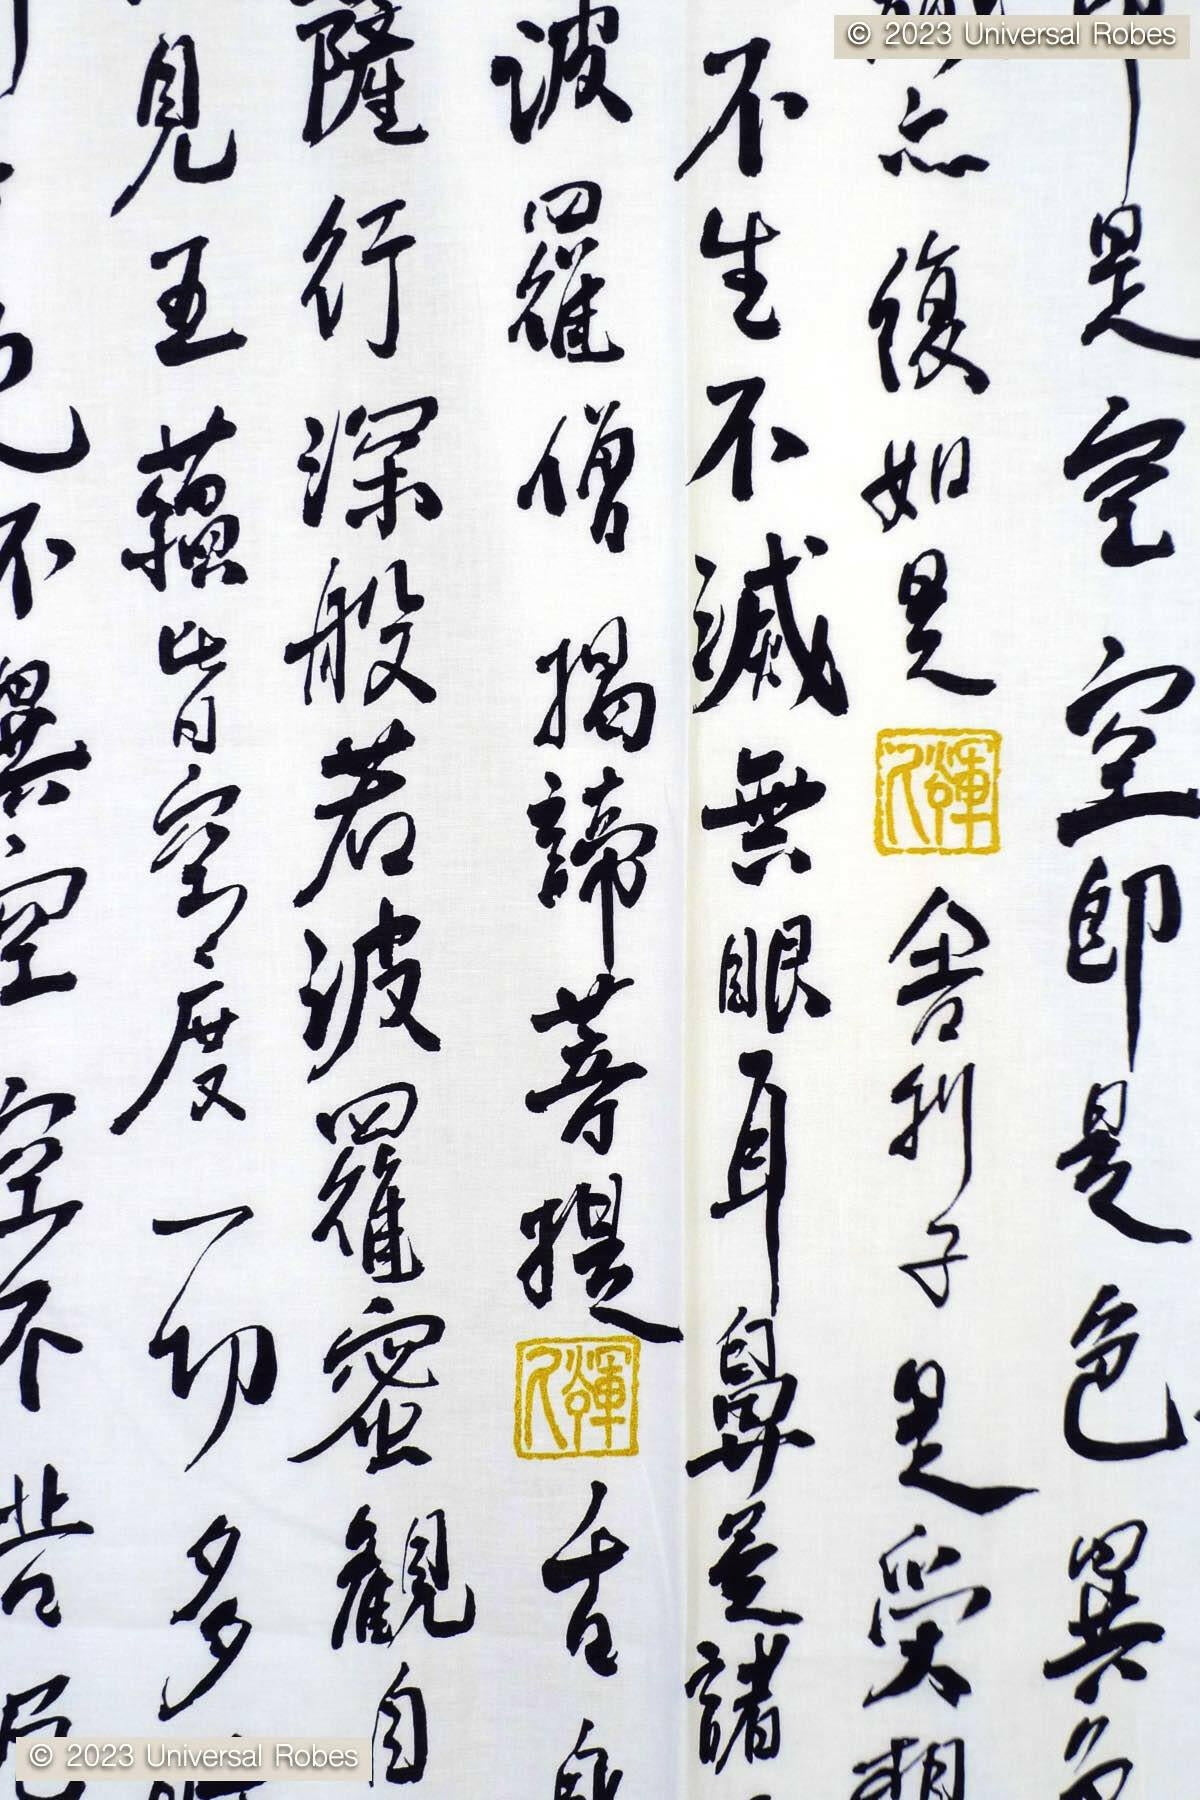 © 2023 Universal Robes
即是空空即是色異色
識亦復如是舍利子是受想
不生不滅無眼耳鼻是諸
波羅僧揭諦菩提舌身
薩行深般若波羅蜜觀自
見五蘊皆空度一切多時
色不異空空不苦厄
© 2023 Universal Robes